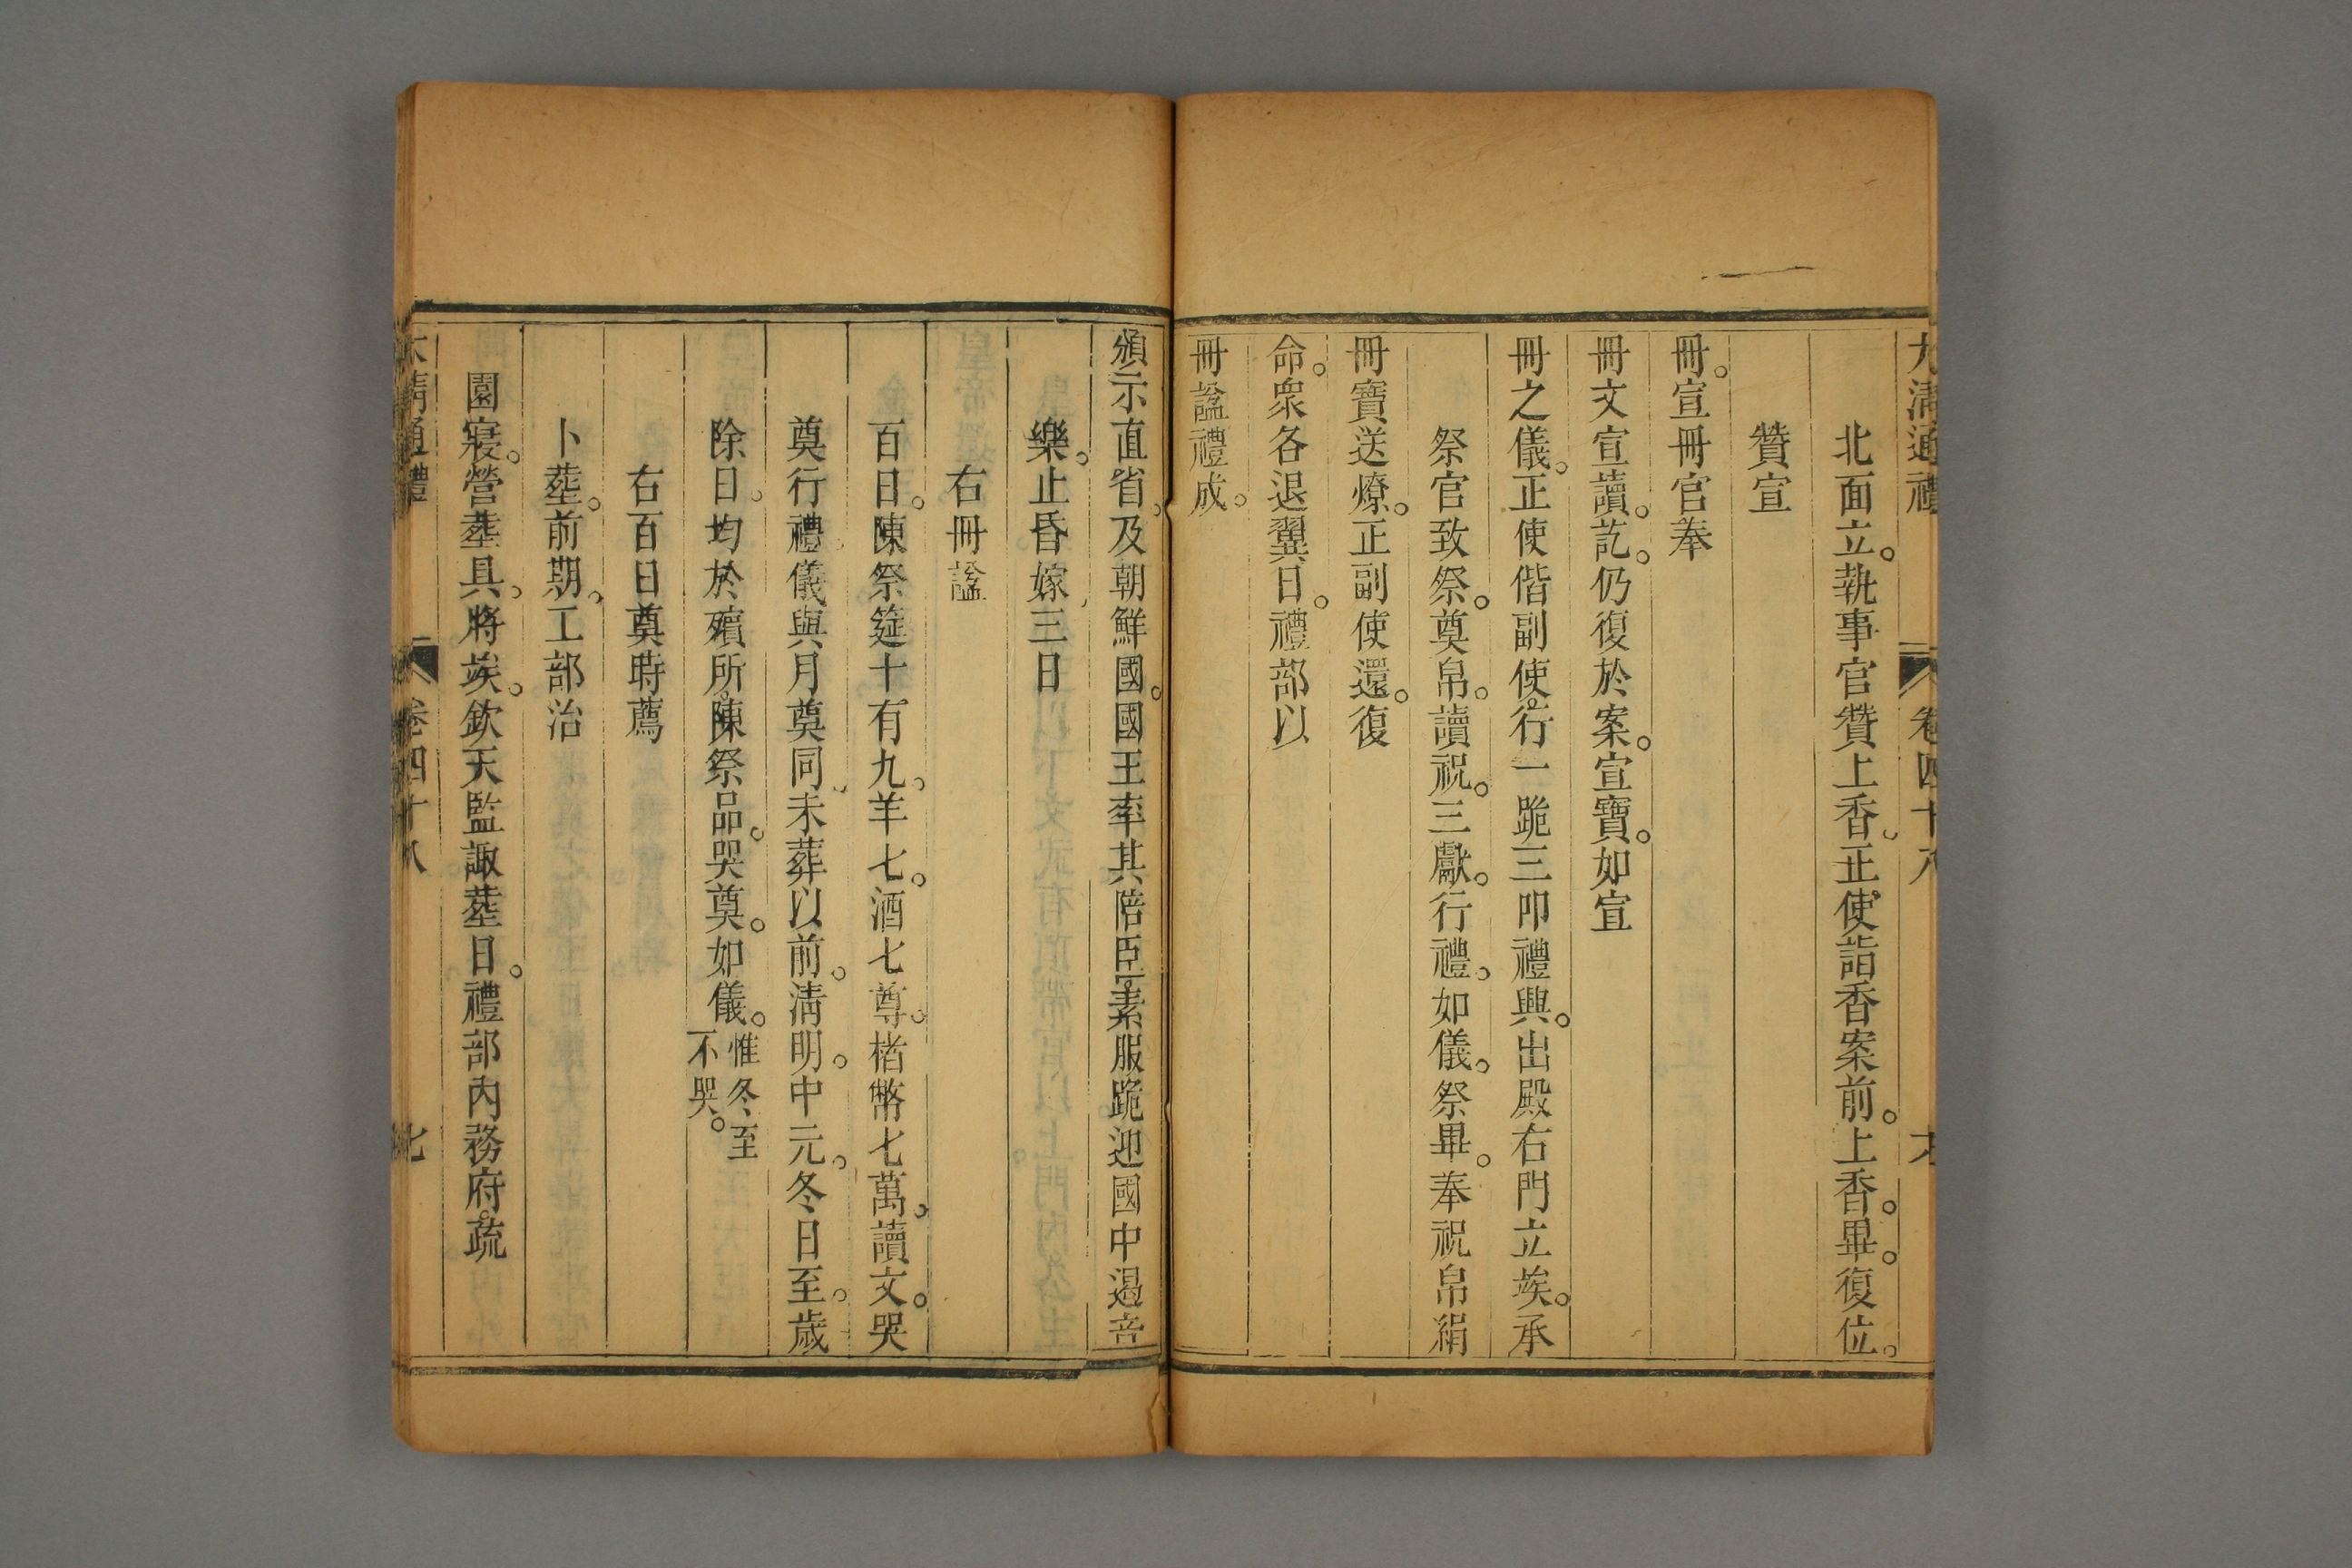 大清通禮 卷四十八
北面立。執事官贊上香。正使詣香案前。上香。畢。復位。
贊宣
冊。宣冊官奉
冊文宣讀。訖。仍復於案。宣寶。如宣
冊之儀。正使偕副使。行一跪三叩禮。興。出殿右門立。竢。承
祭官致祭。奠帛。讀祝。三獻。行禮。如儀。祭畢。奉祝帛絹
冊寶送燎。正副使還。復
命。眾各退。翼日。禮部以
冊諡禮成。
頒示直省。及朝鮮國。國王率其陪臣。素服跪迎。國中遏音
樂。止昏嫁三日
右冊諡
百日。陳祭筵十有九。羊七。酒七尊。楮幣七萬。讀文。哭
奠行禮。儀與月奠同。未葬以前。清明。中元。冬日至。歲
除日。均於殯所。陳祭品。哭奠。如儀。惟冬至
不哭。
右百日奠時薦
卜塟。前期。工部治
園寢。營塟具。將竢。欽天監諏塟日。禮部內務府。疏
大清通禮 卷四十八